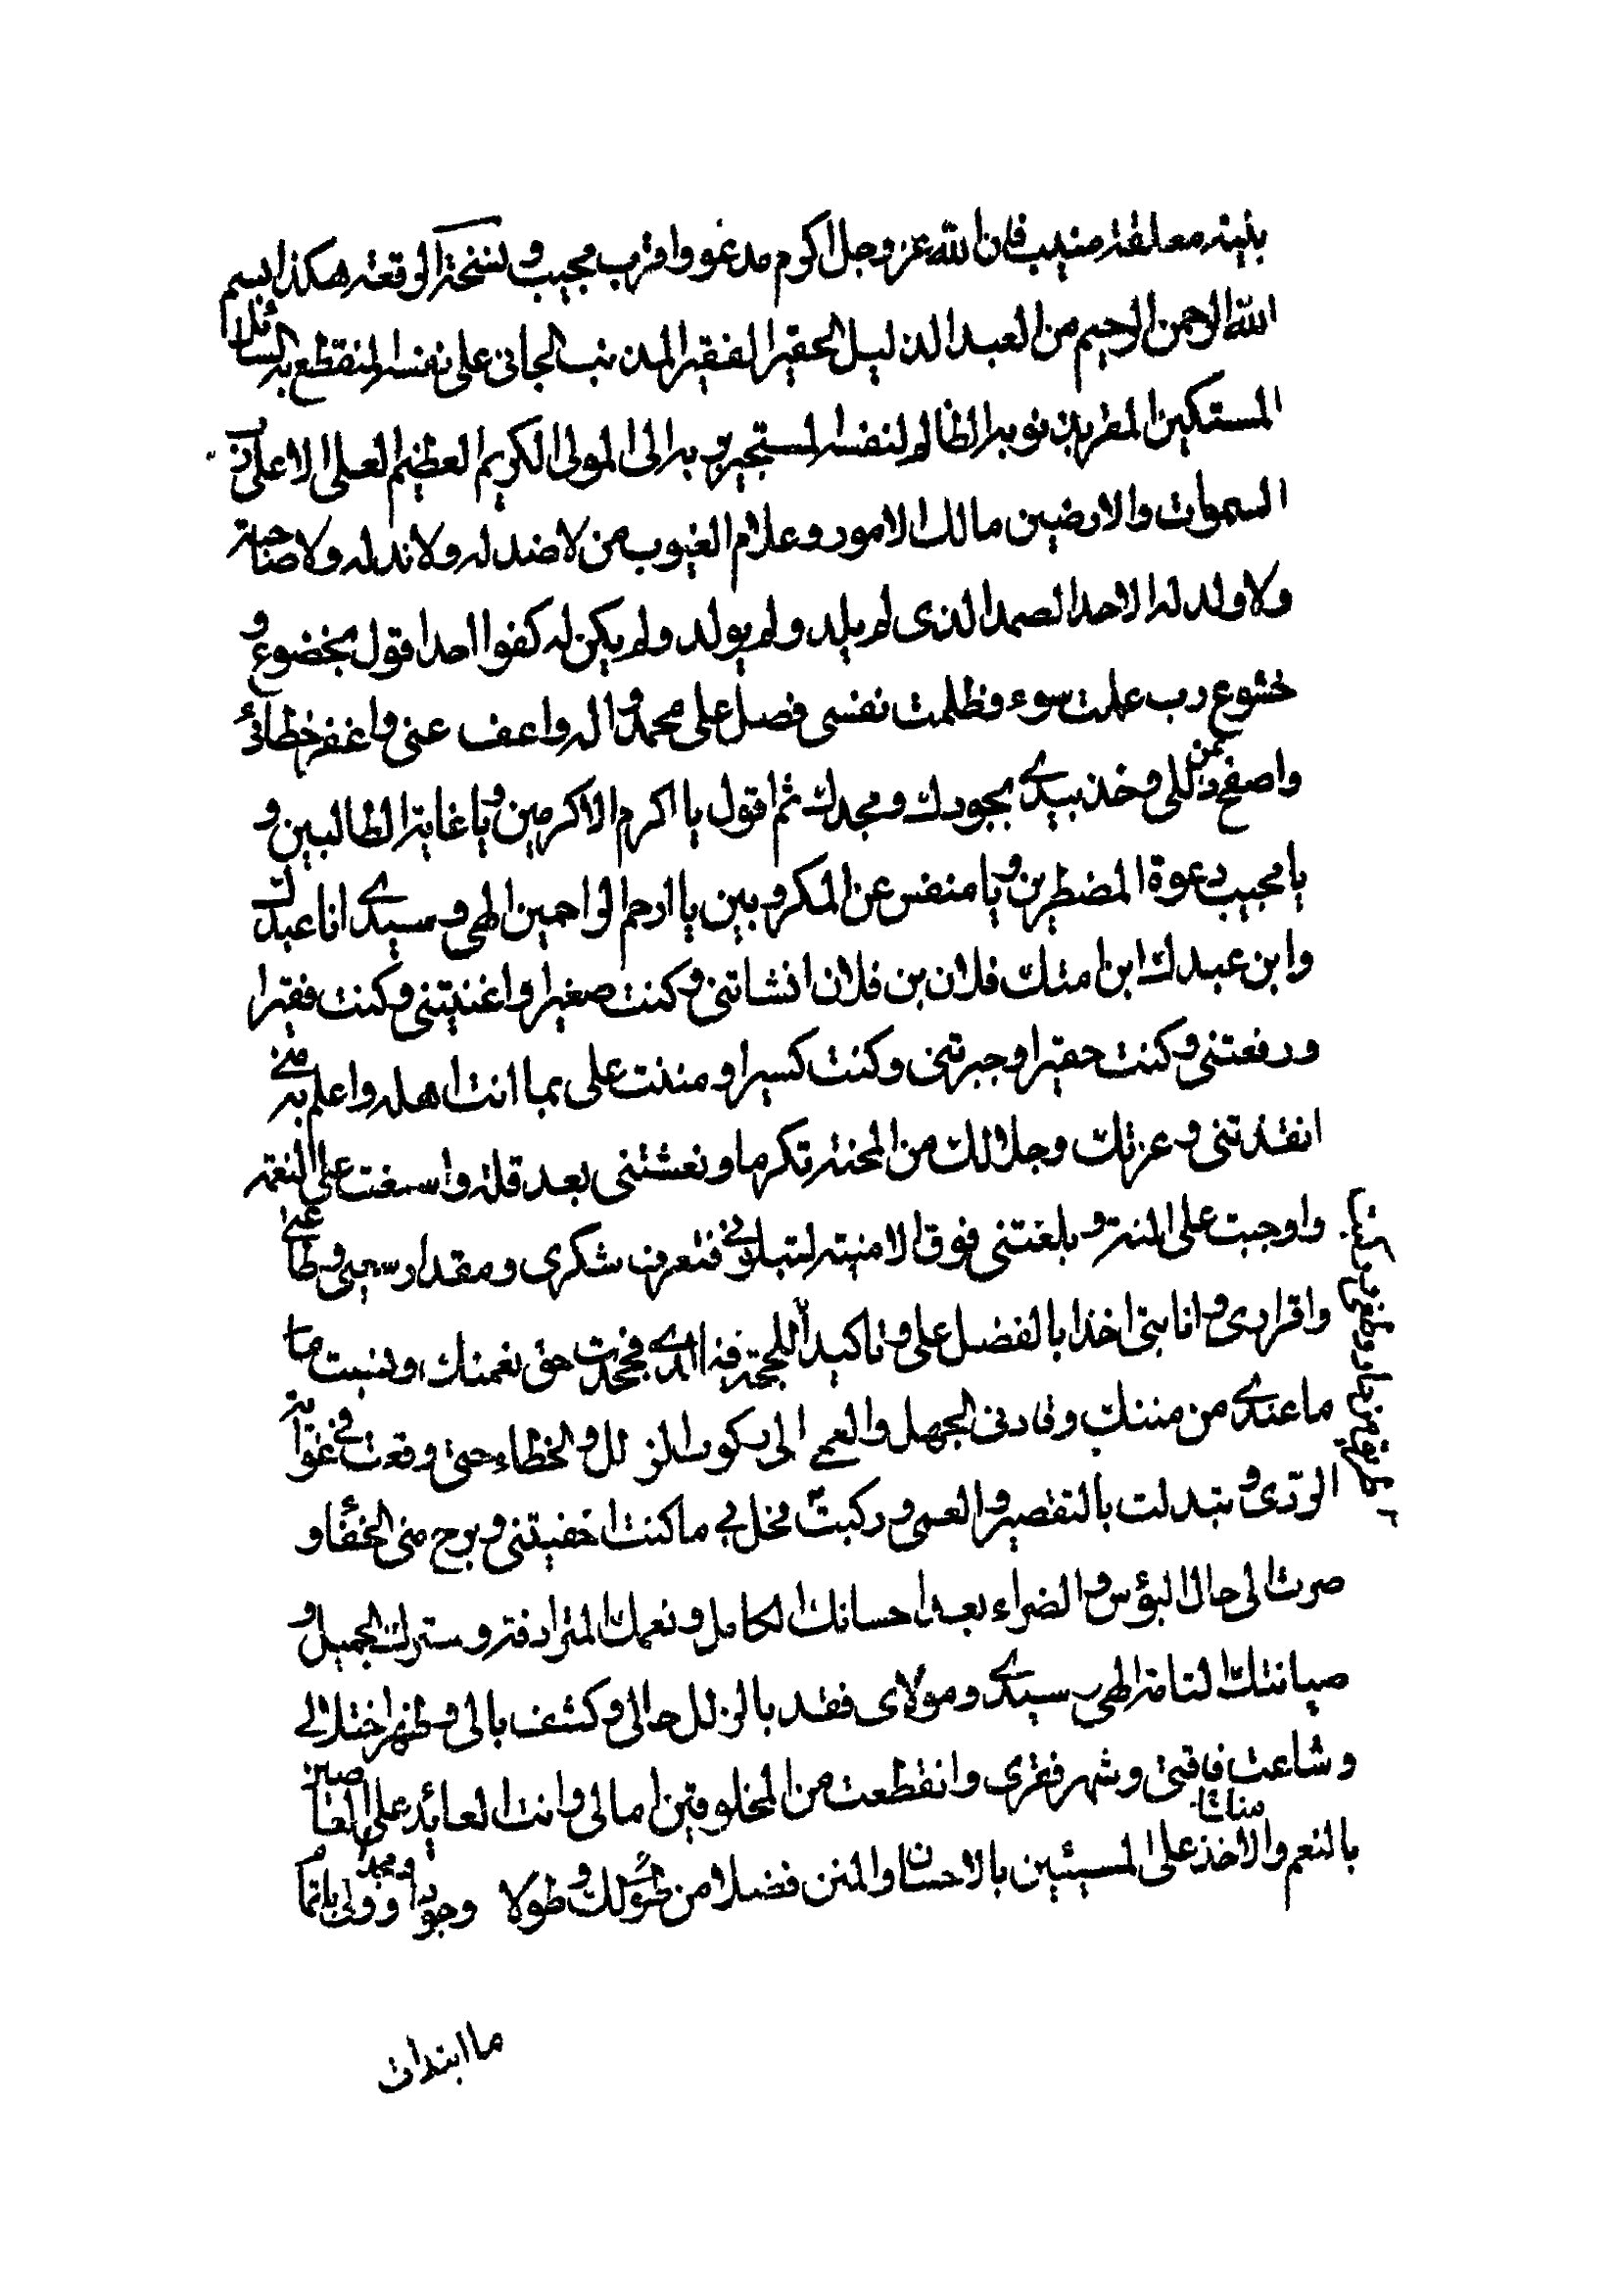 بنيته معلقة منيب فان الله عز وجل اكرم مدعو واقرب مجيب ونسخة الرقعة هكذا بسم
الله الرحمن الرحيم من العبد الذليل الحقير الفقير المذنب الجاني على نفسه المنقطع به السائل
المستكين المقر بذنوبه الظالم لنفسه المستجير به الى المولى الكريم العظيم العلى الاعلى رب
السموات والارضين مالك الامور وعلام الغيوب من لا ضد له ولا ند له ولا صاحبة
ولا ولد له الاحد الصمد الذى لم يلد ولم يولد ولم يكن له كفوا احد اقول بخضوع و
خشوع رب عملت سوء وظلمت نفسى فصل على محمد واله واعف عنى واغفر خطائى
واصفح عن زللى وخذ بيدى بجودك ومجدك ثم اقول يا اكرم الاكرمين ويا غاية الطالبين و
يا مجيب دعوة المضطرين ويا منفس عن المكروبين يا ارحم الراحمين الهى وسيدى انا عبدك
وابن عبدك ابن امتك فلان بن فلان انشاتنى وكنت صغيرا واغنيتنى وكنت فقيرا
ورفعتنى وكنت حقيرا وجبرتنى وكنت كسيرا ومننت على بما انت اهله واعلم به منى
انقذتنى وعزتك وجلالك من المحنة تكرما ونعشتنى بعد قلة واسبغت على النعمة
واوجبت على المنة وبلغتنى فوق الامنية لتبلونى فتعرف شكرى ومقدار سعيى وطاعتى
واقرارى وانابتى اخذا بالفضل على وتاكيدا للحجة فيما لدى فجحدت حق نعمتك ونسيت ما
ما عندى من مننك وقادنى الجهل والعمى الى ركوب الزلل والخطاء حتى وقعت فى غواية
الردى وتبدلت بالتقصير والعمى وركبت مخل بى ما كنت اخفيتنى وبرح منى الخفاء و
صرت الى حال البؤس والضراء بعد احسانك الكامل ونعمك المترادفة وسترك الجميل و
صيانتك التامة الهى سيدى ومولاى فقد بالزلل حالى وكشف بالى وظهر اختلالى
وشاعت فاقتى وشهر فقرى وانقطعت من المخلوقين امالى وانت العائد على العاصين
بالنعم والاخذ منك على المسيئين بالاحسان والمنن فضلا من طولك وطولا وجودا ومجدا وول باتما
ما ابتدات